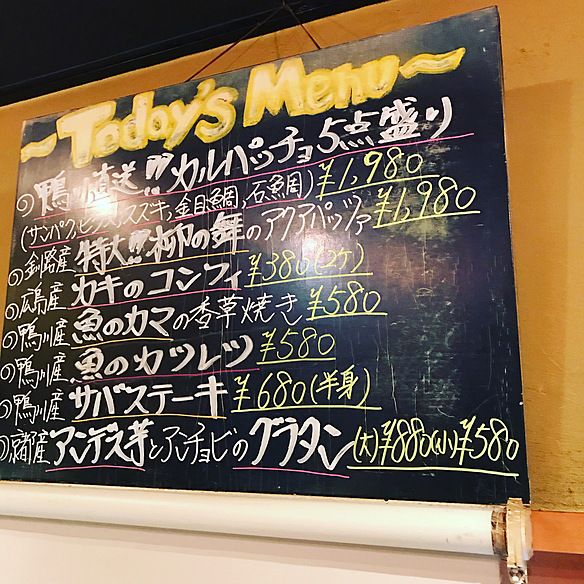 ~Today's Menu~
○鴨川直送!!カルパッチョ5点盛り ¥1,980
(サンパク,ヒラメ,スズキ,金目鯛,石鯛)
○釧路産 特大!!柳の舞のアクアパッツァ ¥1,980
○広島産 カキのコンフィ ¥380(2ケ)
○鴨川産 魚のカマの香草焼き ¥580
○鴨川産 魚のカツレツ ¥580
○鴨川産 サバステーキ ¥680(半身)
○京都産 アンデス芋とアンチョビのグラタン (大)¥880(小)¥580